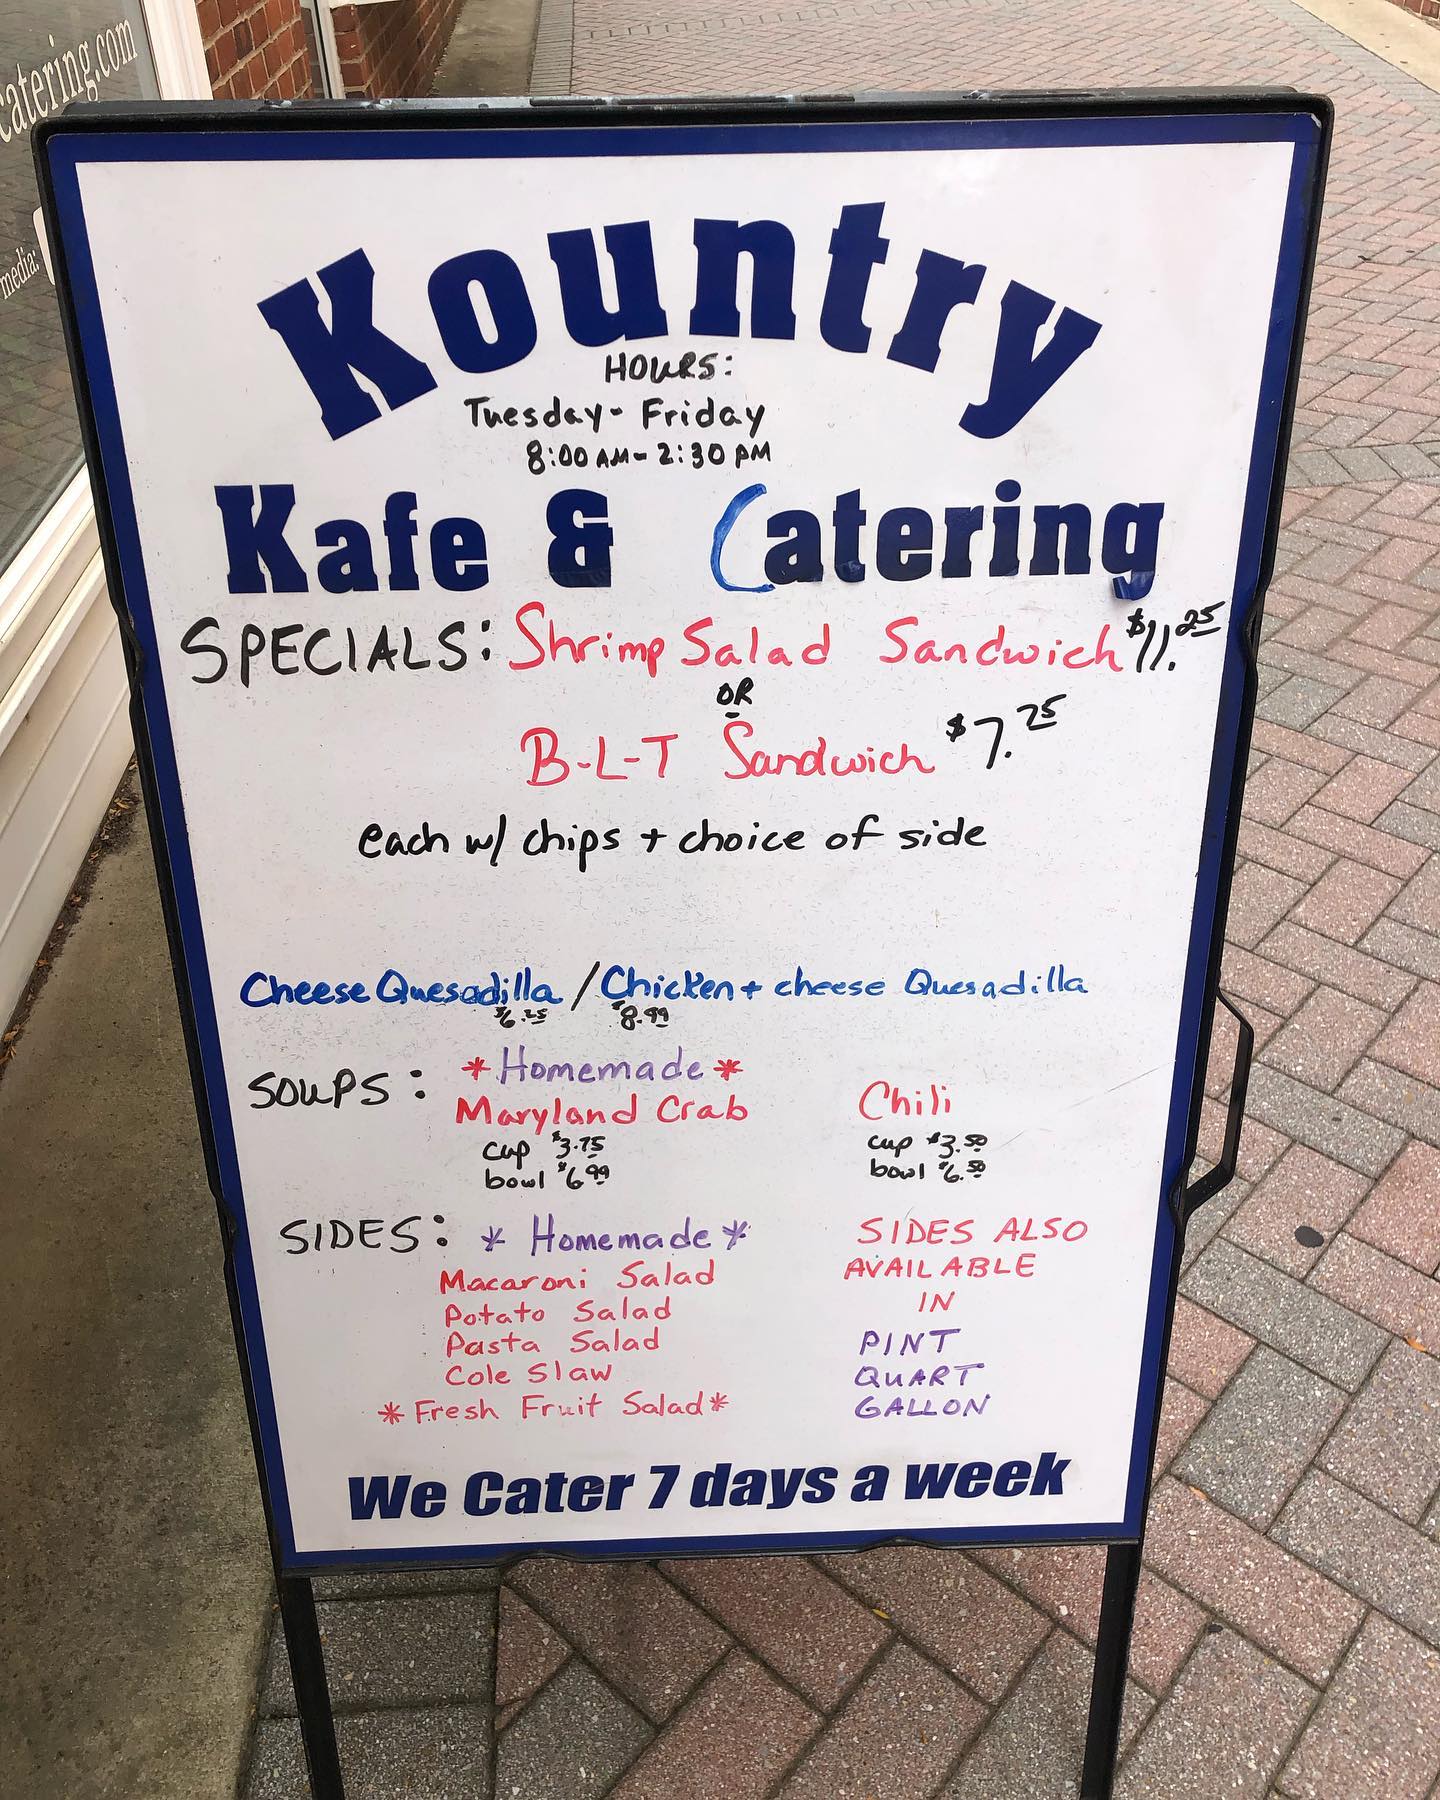 catering.com
media:
Kountry
HOURS:
Tuesday- Friday
8:00 AM- 2:30 PM
Kafe & Catering
SPECIALS: Shrimp Salad Sandwich $11.25
OR
B-L-T Sandwich $7.25
each w/ chips + choice of side
Cheese Quesadilla / Chicken + cheese Quesadilla
$6.25 $8.99
SOUPS: *Homemade*
Maryland Crab
cup $3.75
bowl $6.99
Chili
cup $3.50
bowl $6.50
SIDES: * Homemade *
Macaroni Salad
Potato Salad
Pasta Salad
Cole Slaw
*Fresh Fruit Salad*
SIDES ALSO
AVAILABLE
IN
PINT
QUART
GALLON
We Cater 7 days a week